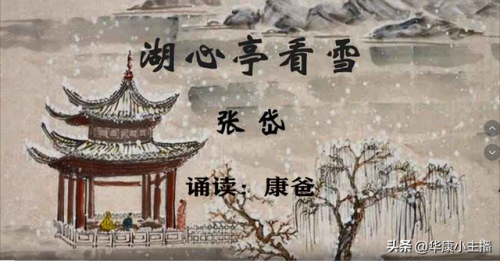 湖心亭看雪
张岱
诵读：康爸
头条@华康小主播